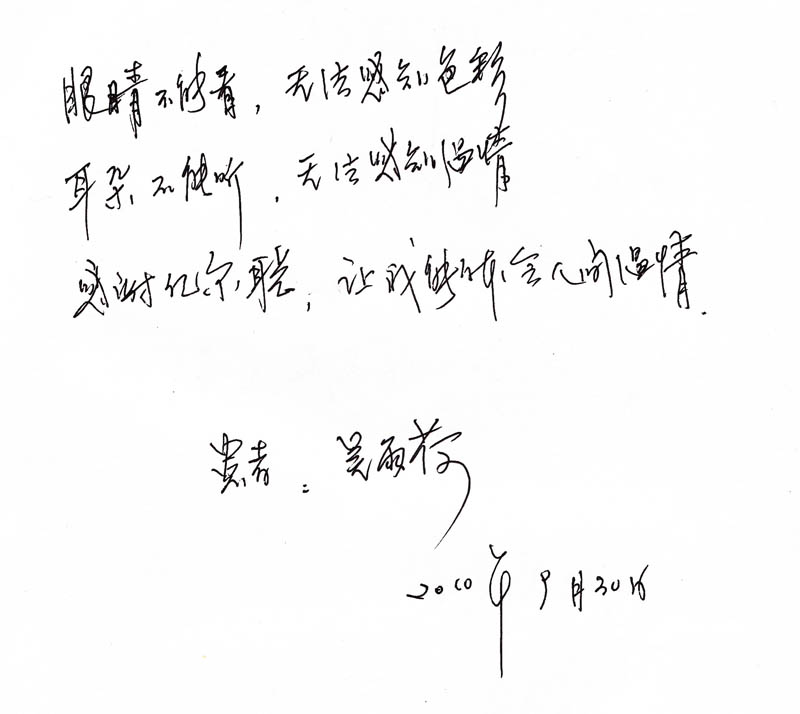 眼睛不能看，无法感知色彩
耳朵不能听，无法感知温情
感谢亿尔聪，让我能体会人间温情.
患者：吴雨荷
2010年9月30日